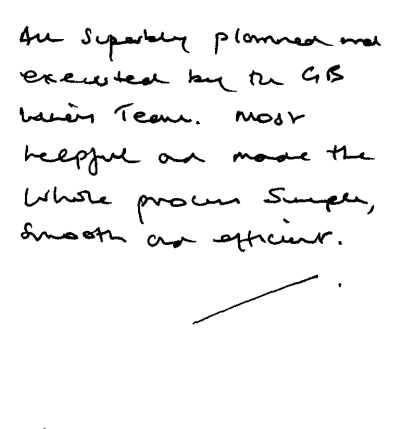 All superbly planned and
executed by the GB
Team. Most
helpful and made the
whole process simple,
smooth and efficient.